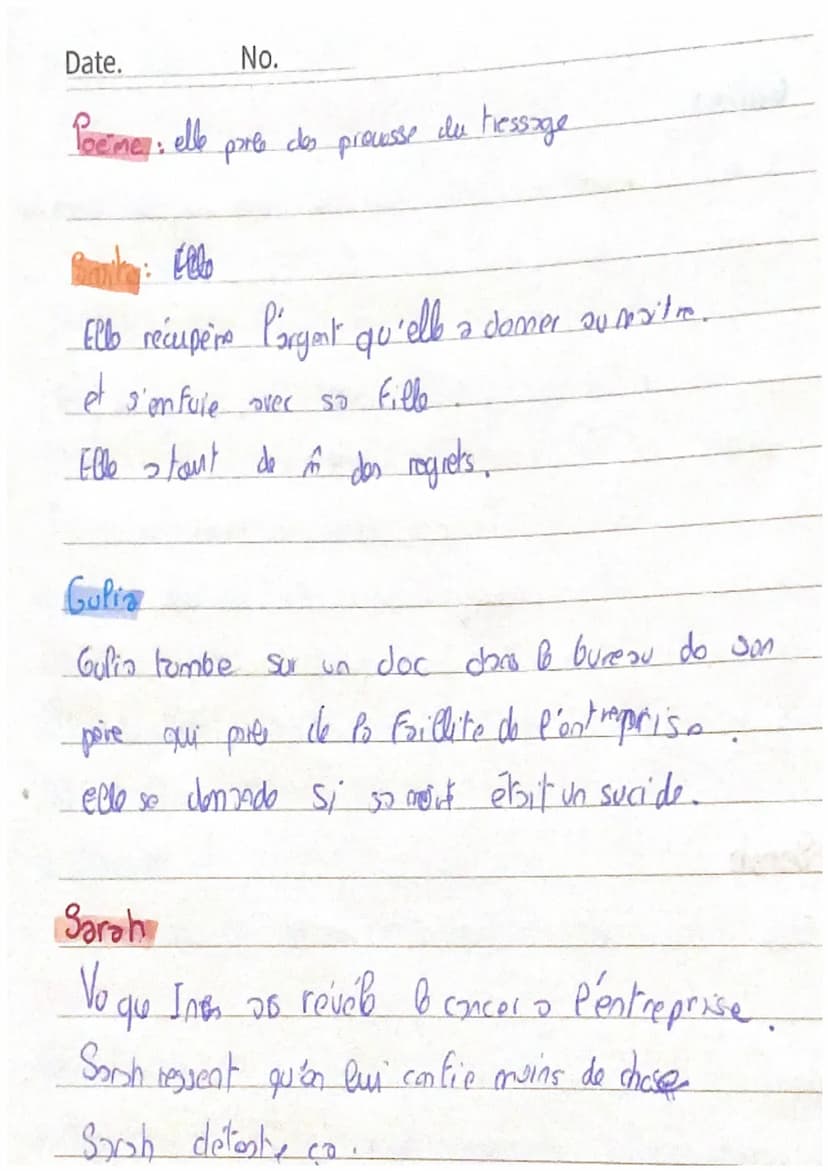 Date. No.
Poème : elle parle des prouesse du tressage
Smita : Elle
Elle récupère l'argent qu'elle a donner au maitre.
et s'enfuie avec sa fille
Elle a tout de m̂ des regrets.
Gulia
Gulia tombe sur un doc dans le bureau de son
père qui parle de la faillite de l'entreprise.
elle se demande si sa mort était un sucide.
Sarah
Vo que Ines as révélé le cancer a l'entreprise.
Sarah ressent qu'on lui confie moins de chose
Sarah déteste ça.